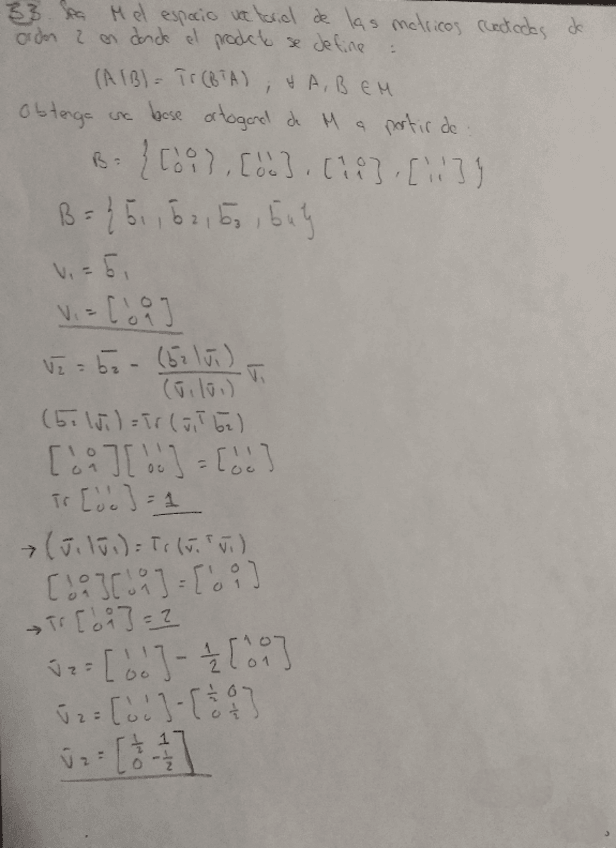 33. Sea M el espacio vectorial de las matrices cuadradas de
orden 2 en donde el producto se define :
(A|B) = Tr(BᵀA) , ∀ A, B ∈ M
Obtenga una base ortogonal de M a partir de :
B = { [1 0; 0 1], [1 1; 0 0], [1 0; 1 1], [1 1; 1 1] }
B = { b̄₁, b̄₂, b̄₃, b̄₄ }
v₁ = b̄₁
v₁ = [1 0; 0 1]
v̄₂ = b̄₂ - (b̄₂|v̄₁)/(v̄₁|v̄₁) v̄₁
(b̄₂|v̄₁) = Tr(v̄₁ᵀ b̄₂)
[1 0; 0 1][1 1; 0 0] = [1 1; 0 0]
Tr [1 1; 0 0] = 1
→ (v̄₁|v̄₁) = Tr(v̄₁ᵀ v̄₁)
[1 0; 0 1][1 0; 0 1] = [1 0; 0 1]
→ Tr [1 0; 0 1] = 2
v̄₂ = [1 1; 0 0] - 1/2 [1 0; 0 1]
v̄₂ = [1 1; 0 0] - [1/2 0; 0 1/2]
v̄₂ = [1/2 1; 0 -1/2]